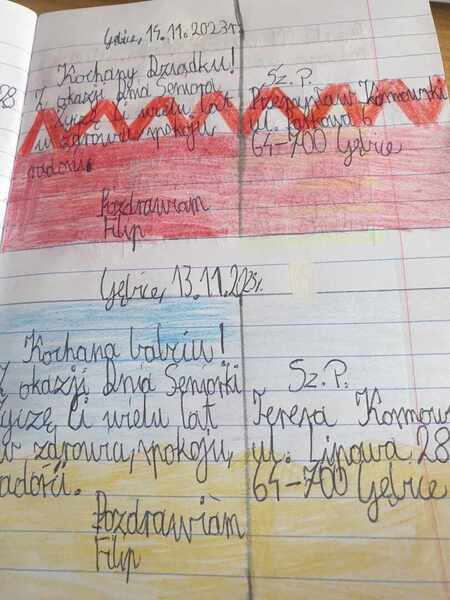 Gębice, 14.11.2023r.
Kochany Dziadku!
Z okazji Dnia Seniora
życzę Ci wielu lat
w zdrowiu, spokoju
radości.
Pozdrawiam
Filip
Sz. P.
Przemysław Komowski
ul. 6
64-700 Gębice
Gębice, 13.11.2023r.
Kochana babciu!
Z okazji Dnia Seniorki
życzę Ci wielu lat
w zdrowiu, spokoju,
radości.
Pozdrawiam
Filip
Sz. P.
Teresa Komow
ul. Lipowa 28
64-700 Gębice